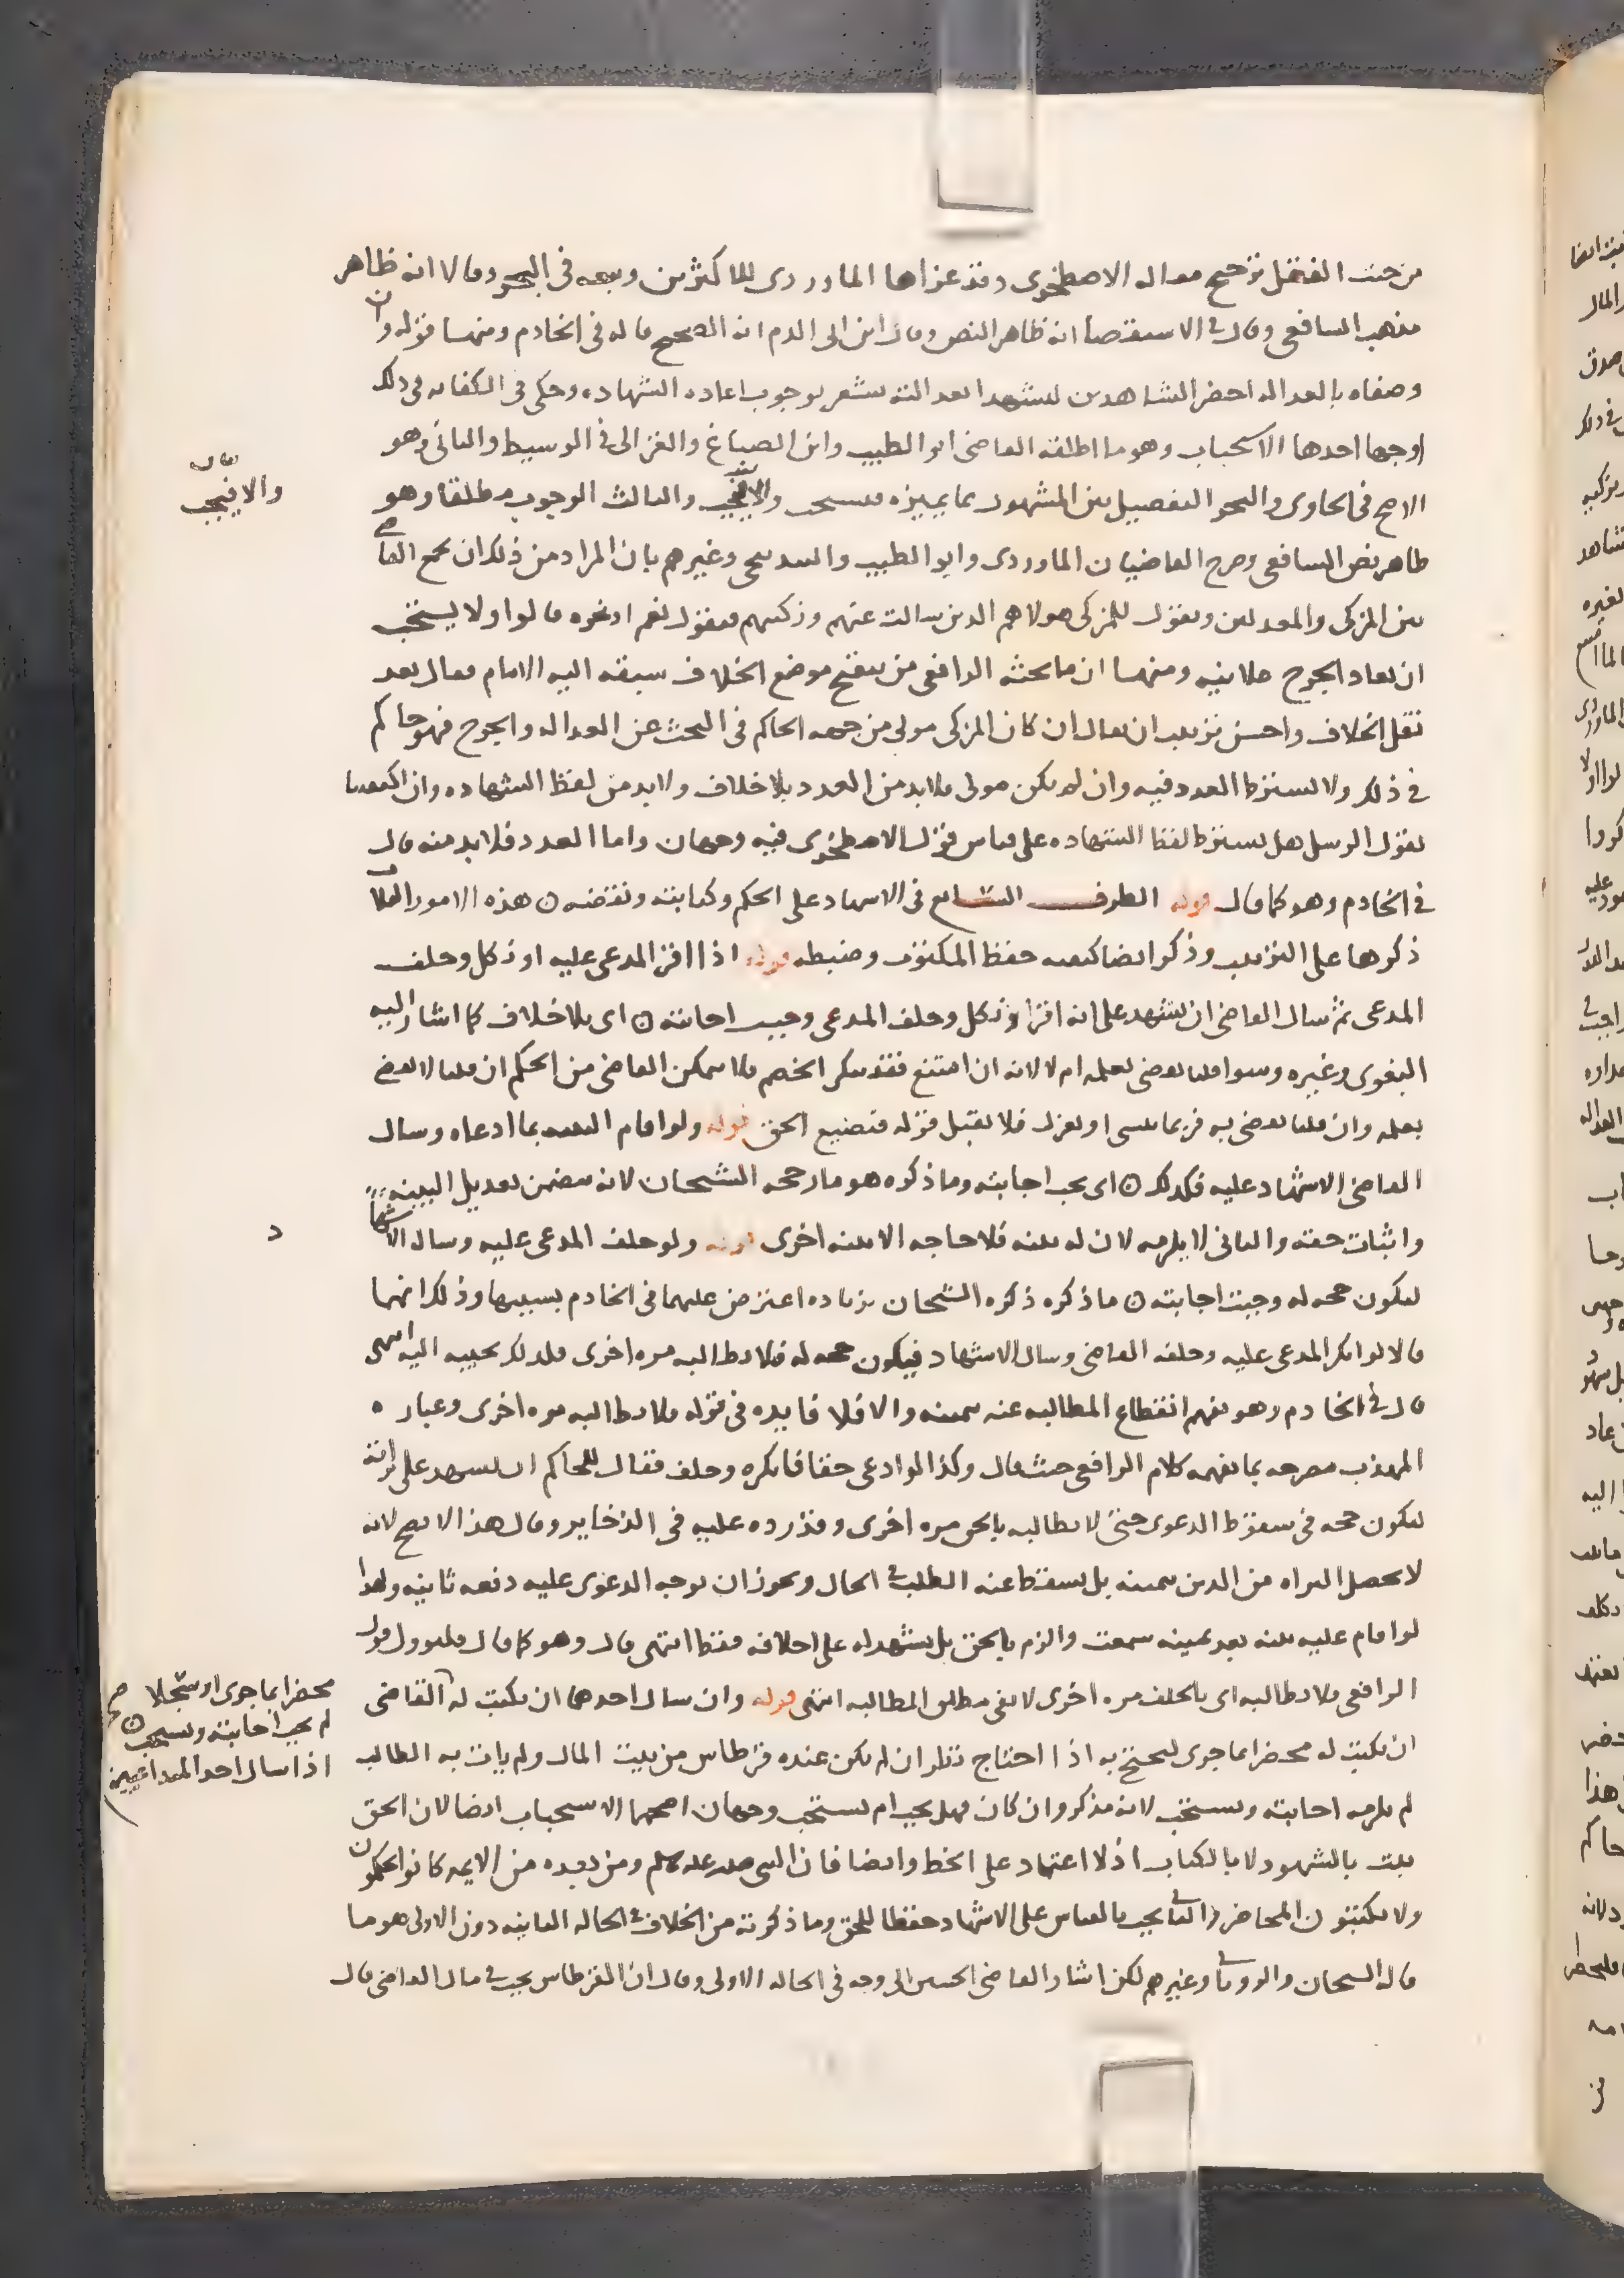 من حيث النقل ترجيح مقاله الاصطخرى وقد عزاها الماوردى للاكثرين وتبعه فى البحر وقالا انه ظاهر
مذهب الشافعى وقال فى الاستقصا انه ظاهر النص وقال ابن ابى الدم انه الصحيح قاله فى الخادم ومنها قوله وان
وصفاه بالعداله احضر الشاهدين ليشهدا بعدالته يشعر بوجوب اعاده الشهاده وحكى فى الكفايه فى ذلك
اوجها احدها الاستحباب وهو ما اطلقه القاضى ابو الطيب وابن الصباغ والغزالى فى الوسيط والثانى وهو
الاصح فى الحاوى والبحر التفصيل بين المشهور بما يميزه فيستحب والا فيجب والثالث الوجوب مطلقا وهو
ظاهر نص الشافعى وصرح القاضيان الماوردى وابو الطيب والبندنيجى وغيرهم بان المراد من ذلك ان يجمع القاضى
بين المزكى والمعدلين ويقول للمزكى هولاهم الذين سالت عنهم وزكيتهم فيقول نعم او نحوه قالوا ولا يستحب
ان يعاد الجرح علانيه ومنها ان ما بحثه الرافعى من تنقيح موضع الخلاف سبقه اليه الامام فقال بعد
نقل الخلاف واحسن ترتيب ان يقال ان كان المزكى مولى من جهه الحاكم فى البحث عن العداله والجرح فهو حاكم
فى ذلك ولا يشترط العدد فيه وان لم يكن مولى فلابد من العدد بلا خلاف ولابد من لفظ الشهاده وان اكتفينا
بقول الرسل هل يشترط لفظ الشهاده على قياس قول الاصطخرى فيه وجهان واما العدد فلابد منه قال
فى الخادم وهو كما قال قوله الطرف السابع فى الاشهاد على الحكم وكتابته ونقضه ن هذه الامور الثلاثه
ذكرها على الترتيب وذكر ايضا كيفيه حفظ المكتوب وضبطه قوله اذا اقر المدعى عليه او نكل وحلف
المدعى ثم سال القاضى ان يشهد على انه اقر او نكل وحلف المدعى وجبت اجابته ن اى بلا خلاف كما اشار اليه
البغوى وغيره وسوا قلنا يقضى بعلمه ام لا لانه ان امتنع فقد ينكر الخصم فلا يمكن القاضى من الحكم ان قلنا لا يقضى
بعلمه وان قلنا يقضى به فربما ينسى او يعزل فلا يقبل قوله فتضيع الحق قوله ولو اقام البينه بما ادعاه وسال
القاضى الاشهاد عليه فكذلك ن اى يجب اجابته وما ذكره هو ما رجحه الشيخان لانه يتضمن تعديل البينه
واثبات حقه والثانى لا يلزمه لان له بينه فلا حاجه الا بينه اخرى قوله ولو حلف المدعى عليه وسال الاشهاد
ليكون حجه له وجبت اجابته ن ما ذكره ذكره الشيخان بزياده اعترض عليهما فى الخادم بسببها وذلك انهما
قالا لو انكر المدعى عليه وحلفه القاضى وسال الاشهاد فيكون حجه له فلا يطالبه مره اخرى فلذلك يجيبه اليه انتهى
قال فى الخادم وهو يفهم انقطاع المطالبه عنه بيمينه والا فلا فايده فى قوله فلا يطالبه مره اخرى وعباره
المهذب مصرحه بما يفهمه كلام الرافعى حيث قال وكذا لو ادعى حقا فانكره وحلف فقال للحاكم ان يشهد على براته
ليكون حجه فى سقوط الدعوى حتى لا يطالبه بالحق مره اخرى وقد رده عليه فى الذخاير وقال هذا لا يصح لانه
لا يحصل البراه من الدين بيمينه بل يسقط عنه الطلب فى الحال ويجوز ان يوجه الدعوى عليه دفعه ثانيه ولهذا
لو اقام عليه بينه بعد يمينه سمعت والزم بالحق بل يشهد له على احلافه فقط انتهى قال وهو كما قال فليوول قول
الرافعى فلا يطالبه اى بالحلف مره اخرى لا نفى مطلق المطالبه انتهى قوله وان سال احدهما ان يكتب له القاضى
ان يكتب له محضرا بما جرى ليحتج به اذا احتاج نظر ان لم يكن عنده قرطاس من بيت المال ولم يات به الطالب
لم يلزمه اجابته ويستحب لانه مذكر وان كان فهل يجب ام يستحب وجهان اصحهما الاستحباب ايضا لان الحق
يثبت بالشهود لا بالكتاب اذ لا اعتماد على الخط وايضا فان النبى صلى الله عليه وسلم ومن بعده من الايمه كانوا يحكمون
ولا يكتبون المحاضر والثانى يجب بالقياس على الاشهاد حفظا للحق وما ذكرته من الخلاف فى الحاله الثانيه دون الاولى هو ما
قاله الشيخان والرويانى وغيرهم لكن اشار القاضى الحسين الى وجه فى الحاله الاولى وقال ان القرطاس يجب فى مال القاضى قال
بيان
والا فيجب
د
محضرا بما جرى او سجلا صح
لم يجب اجابته ويستحب ن
اذا سال احد المتداعيين